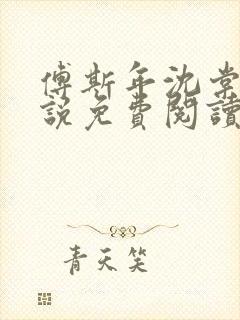 傅斯年沈棠
說免費閱讀
青天笑